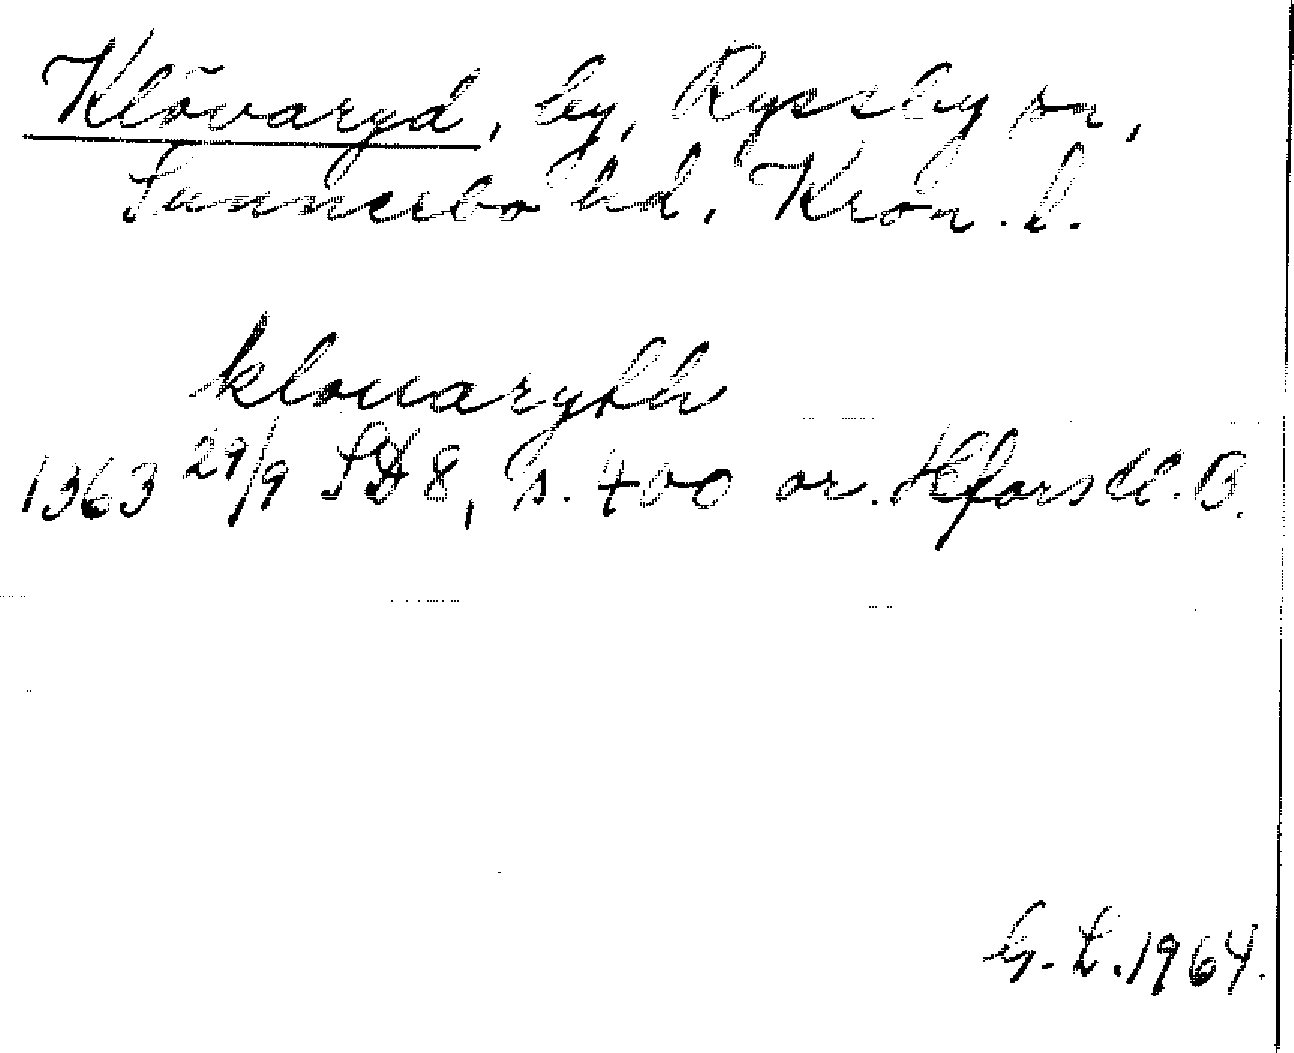 Klövaryd, by, Ryssby sn,
Sunnerbo hd, Kron. l.
klouarydh
1363 29/9 SD 8, s. 400 or. Hfors U.B.
G. L. 1964.